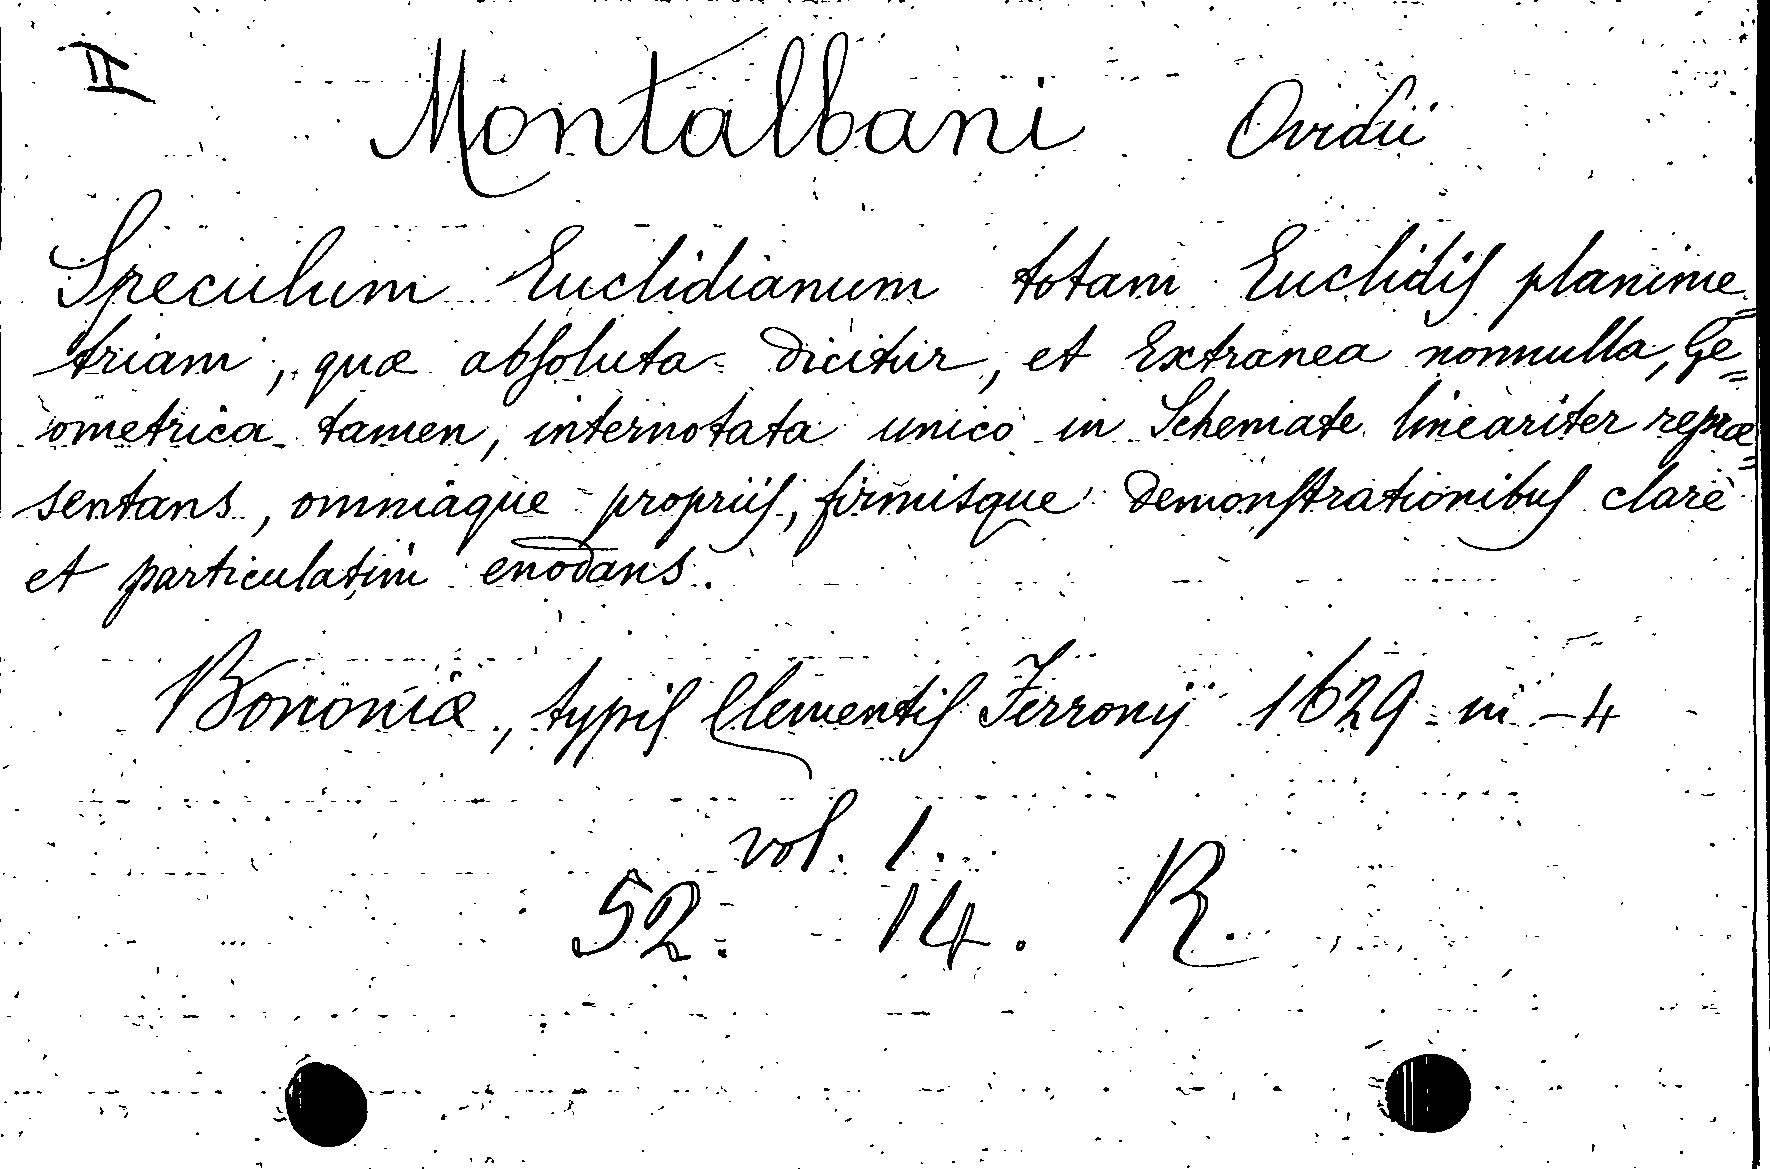 II
Montalbani Ovidii
Speculum Euclidianum totam Euclidis planime=
triam, quæ absoluta dicitur, et Extranea nonnulla, Ge=
ometrica tamen, internotata unico in Schemate lineariter repræ=
sentans, omniaque propriis, firmisque Demonstrationibus clarè
et particulatim enodans.
Bononiæ, typis Clementis Ferronij 1629 in-4
vol. 1.
52. 14. R.